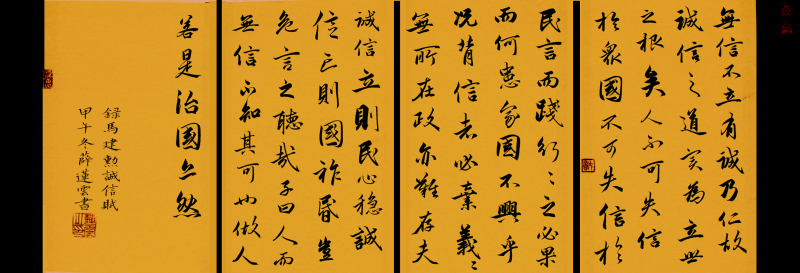 無信不立有誠乃仁故
誠信之道實為立世
之根矣人不可失信
於眾國不可失信於
民言而踐行々之必果
而何患家國不興乎
況背信者必棄義々
無所在政亦難存夫
誠信立則民心穩誠
信亡則國祚昏豈
危言之聽哉子曰人而
無信不知其可也做人
若是治國亦然
錄馬建勳誠信賦
甲午冬薛蓮雲書